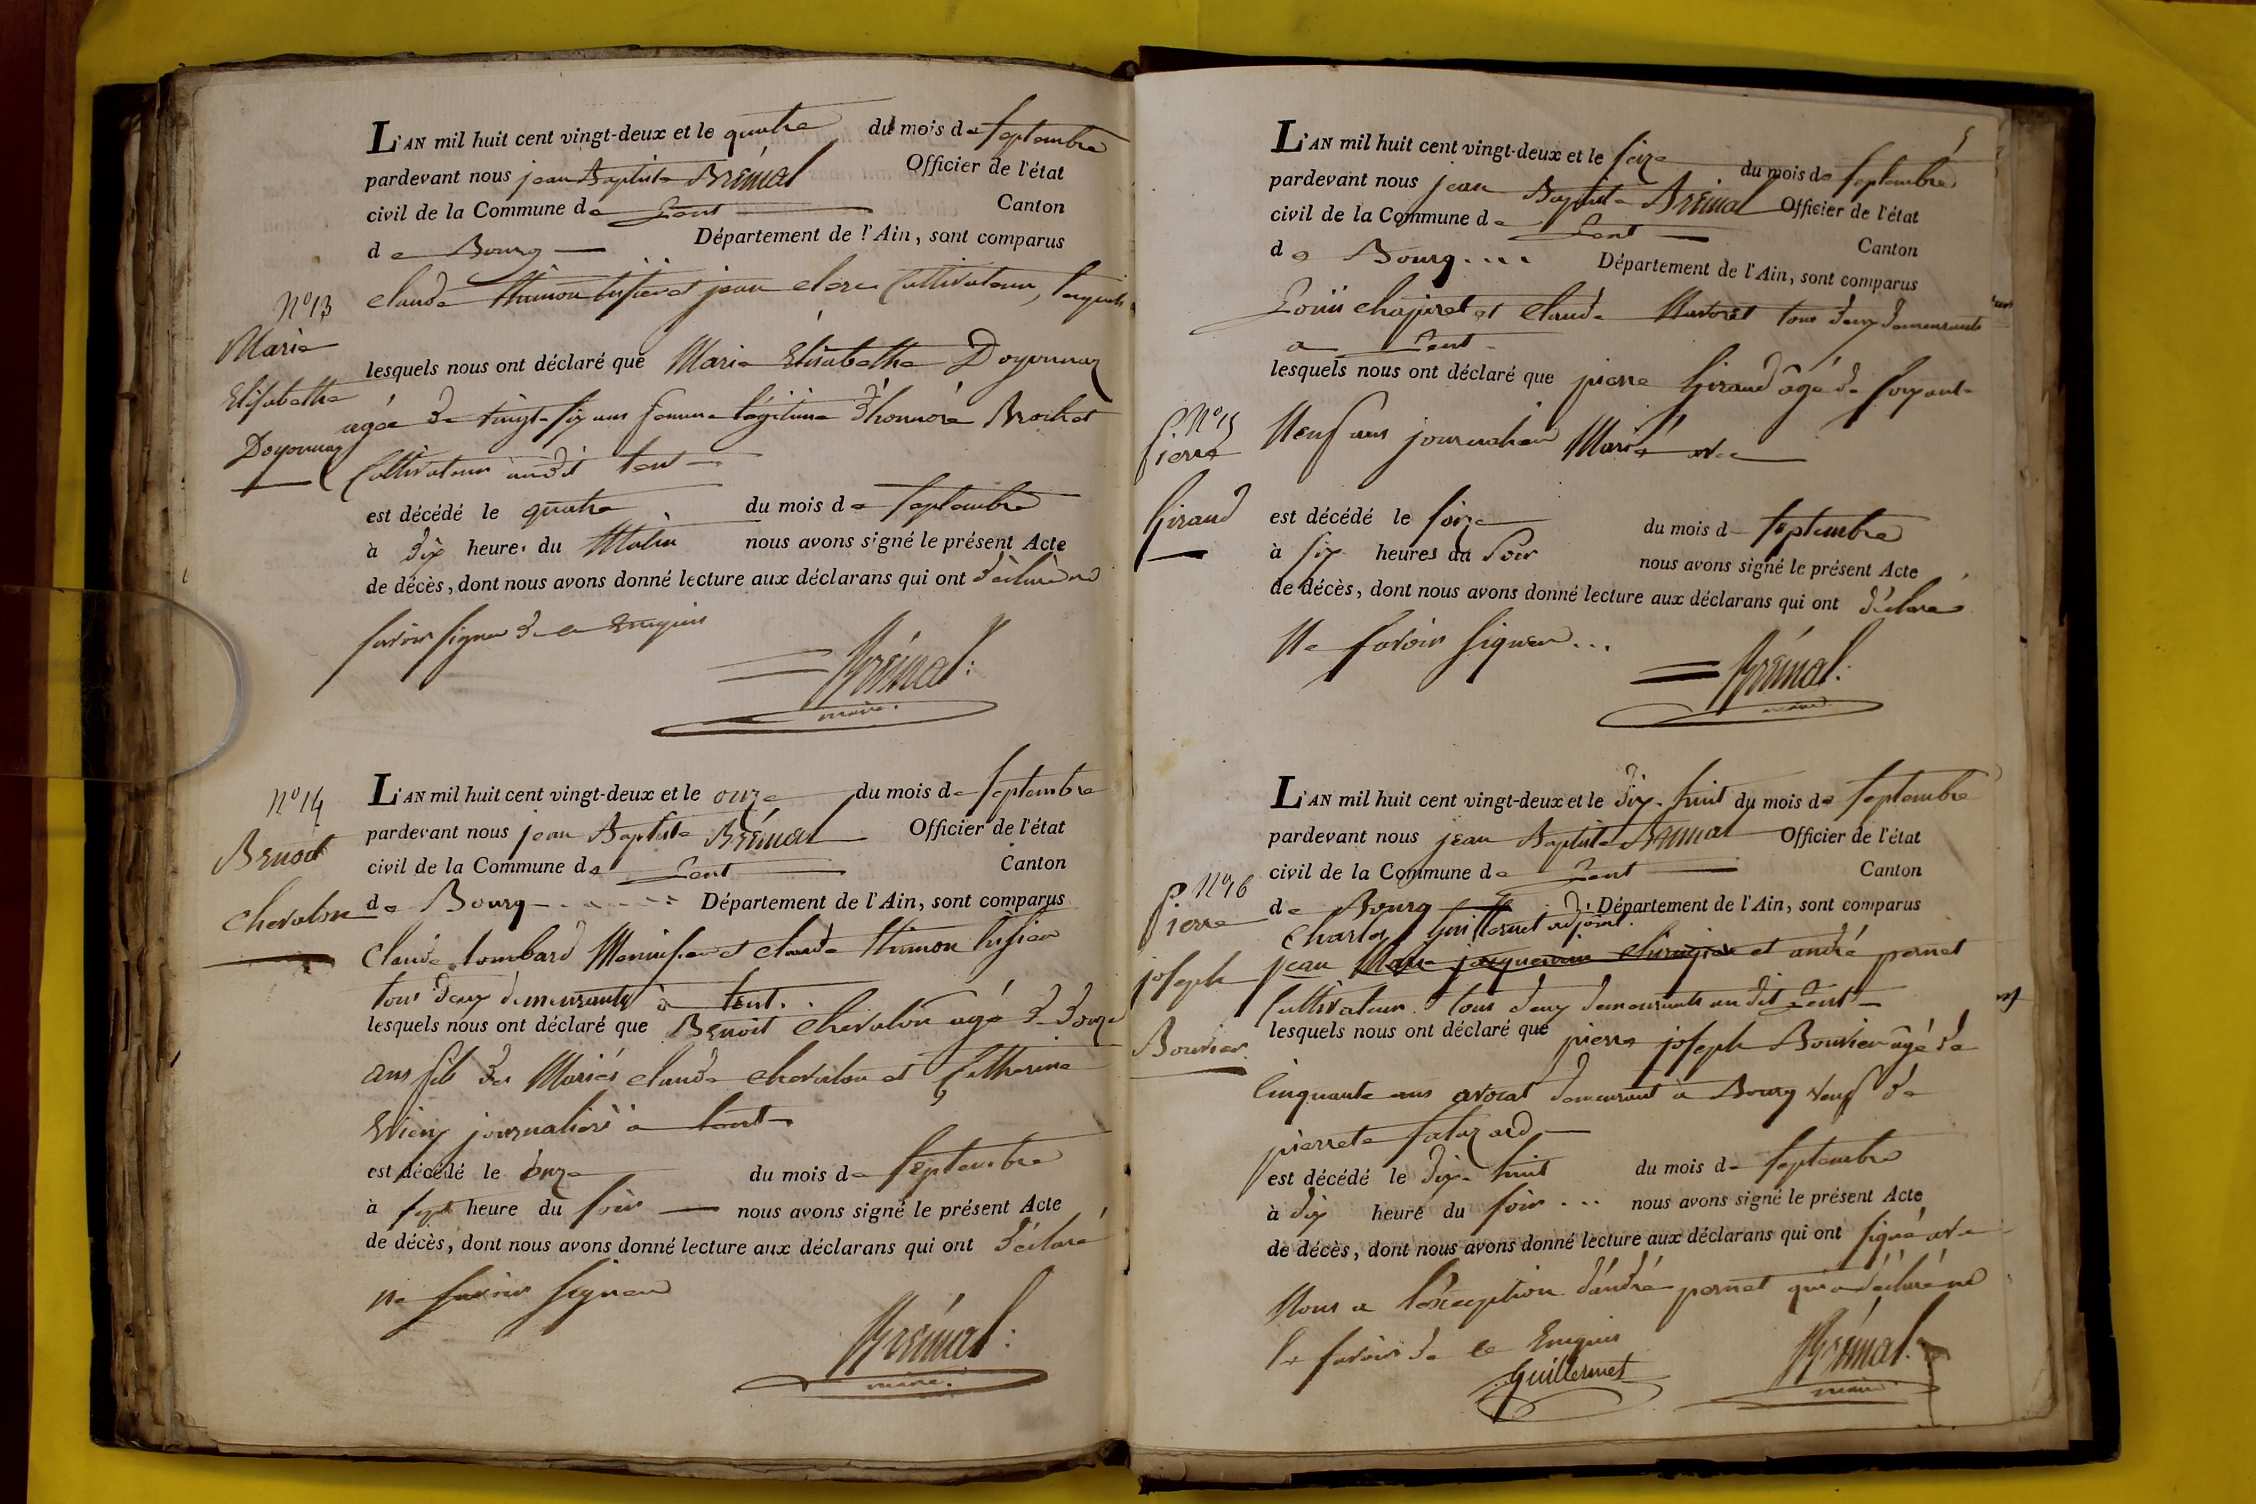 L'AN mil huit cent vingt-deux et le quatre du mois de septembre
pardevant nous jean Baptiste Brémal Officier de l'état
civil de la Commune de Lent Canton
de Bourg Département de l'Ain, sont comparus
N° 13
Marie
Elisabethe
Doyonnaz
claude thimon tissier et jean clerc Cultivateur,
lesquels nous ont déclaré que Marie Elisabethe Doyonnaz
agée de vingt-six ans femme légitime d'honnoré Brochet
Cultivateur audit Lent
est décédé le quatre du mois de septembre
à dix heure du Matin nous avons signé le présent Acte
de décès, dont nous avons donné lecture aux déclarans qui ont déclaré ne
savoir signer de ce Enquis
Brémal:
maire.
N° 14
Benoit
Chevalon
L'AN mil huit cent vingt-deux et le onze du mois de septembre
pardevant nous jean Baptiste Brémal Officier de l'état
civil de la Commune de Lent Canton
de Bourg Département de l'Ain, sont comparus
Claude Lombard Menuisier et claude thimon tissier
tous deux demeurants à Lent.
lesquels nous ont déclaré que Benoit Chevalon agé de douze
ans fils des Mariés claude chevalon et Catherine
journaliers à Lent
est décédé le onze du mois de septembre
à sept heure du soir nous avons signé le présent Acte
de décès, dont nous avons donné lecture aux déclarans qui ont déclaré
ne savoir signer
Brémal:
maire.
5
L'AN mil huit cent vingt-deux et le seize du mois de septembre
pardevant nous jean Baptiste Brémal Officier de l'état
civil de la Commune de Lent Canton
de Bourg.... Département de l'Ain, sont comparus
Louis chapiret et Claude Mavoret tous deux demeurants
a Lent
lesquels nous ont déclaré que pierre Giraud âgé de soixante
N° 15
Pierre
Giraud
Neuf ans journalier Marié
est décédé le seize du mois de septembre
à six heures du Soir nous avons signé le présent Acte
de décès, dont nous avons donné lecture aux déclarans qui ont déclaré
Ne savoir signer...
Brémal:
maire
L'AN mil huit cent vingt-deux et le dix-huit du mois de septembre
pardevant nous jean Baptiste Brémal Officier de l'état
civil de la Commune de Lent Canton
de Bourg Département de l'Ain, sont comparus
N° 16
Pierre
joseph
Bouvier
Charles Guillermet adjoint.
jean Marie jacquemin chirugien et andré pernet
Cultivateur. tous deux demeurants au dit Lent
lesquels nous ont déclaré que pierre joseph Bouvier âgé de
Cinquante ans avocat demeurant à Bourg veuf de
pierrete
est décédé le dix-huit du mois de septembre
à dix heure du soir... nous avons signé le présent Acte
de décès, dont nous avons donné lecture aux déclarans qui ont signé avec
Nous a l'exception d'andré pernet qui a déclaré ne
le savoir de ce Enquis
Guillermet
Brémal.
maire